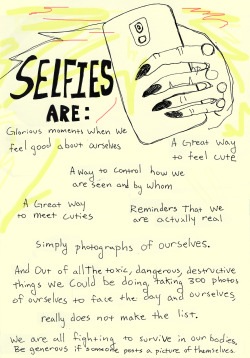 SELFIES
ARE:
Glorious moments when we
feel good about ourselves
A Great Way
to feel cute
A Way to control how we
are seen and by whom
A Great Way
to meet cuties
Reminders That we
are actually real
Simply photographs of ourselves.
And Out of all The toxic, dangerous, destructive
things we could be doing, taking 300 photos
of ourselves to face the day and ourselves,
really does not make the list.
We are all fighting to survive in our bodies,
Be generous if someone posts a picture of themselves.